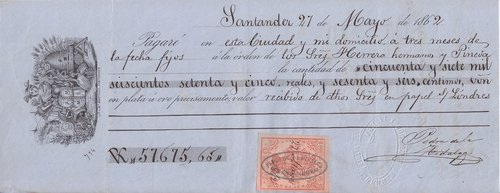 Santander 27 de Mayo de 1862
Pagaré en esta Ciudad y mi domicilio á tres meses de
la fecha fijos á la órden de los Sres Herrera hermanos y Pineda
la cantidad de cincuenta y siete mil
seiscientos setenta y cinco, reales, y sesenta y seis, centimos, von
en plata u oro precisamente, valor recibido de dhos Sres en papel s/ Londres
Rn 57675,66
Pedro de la
Hidalga